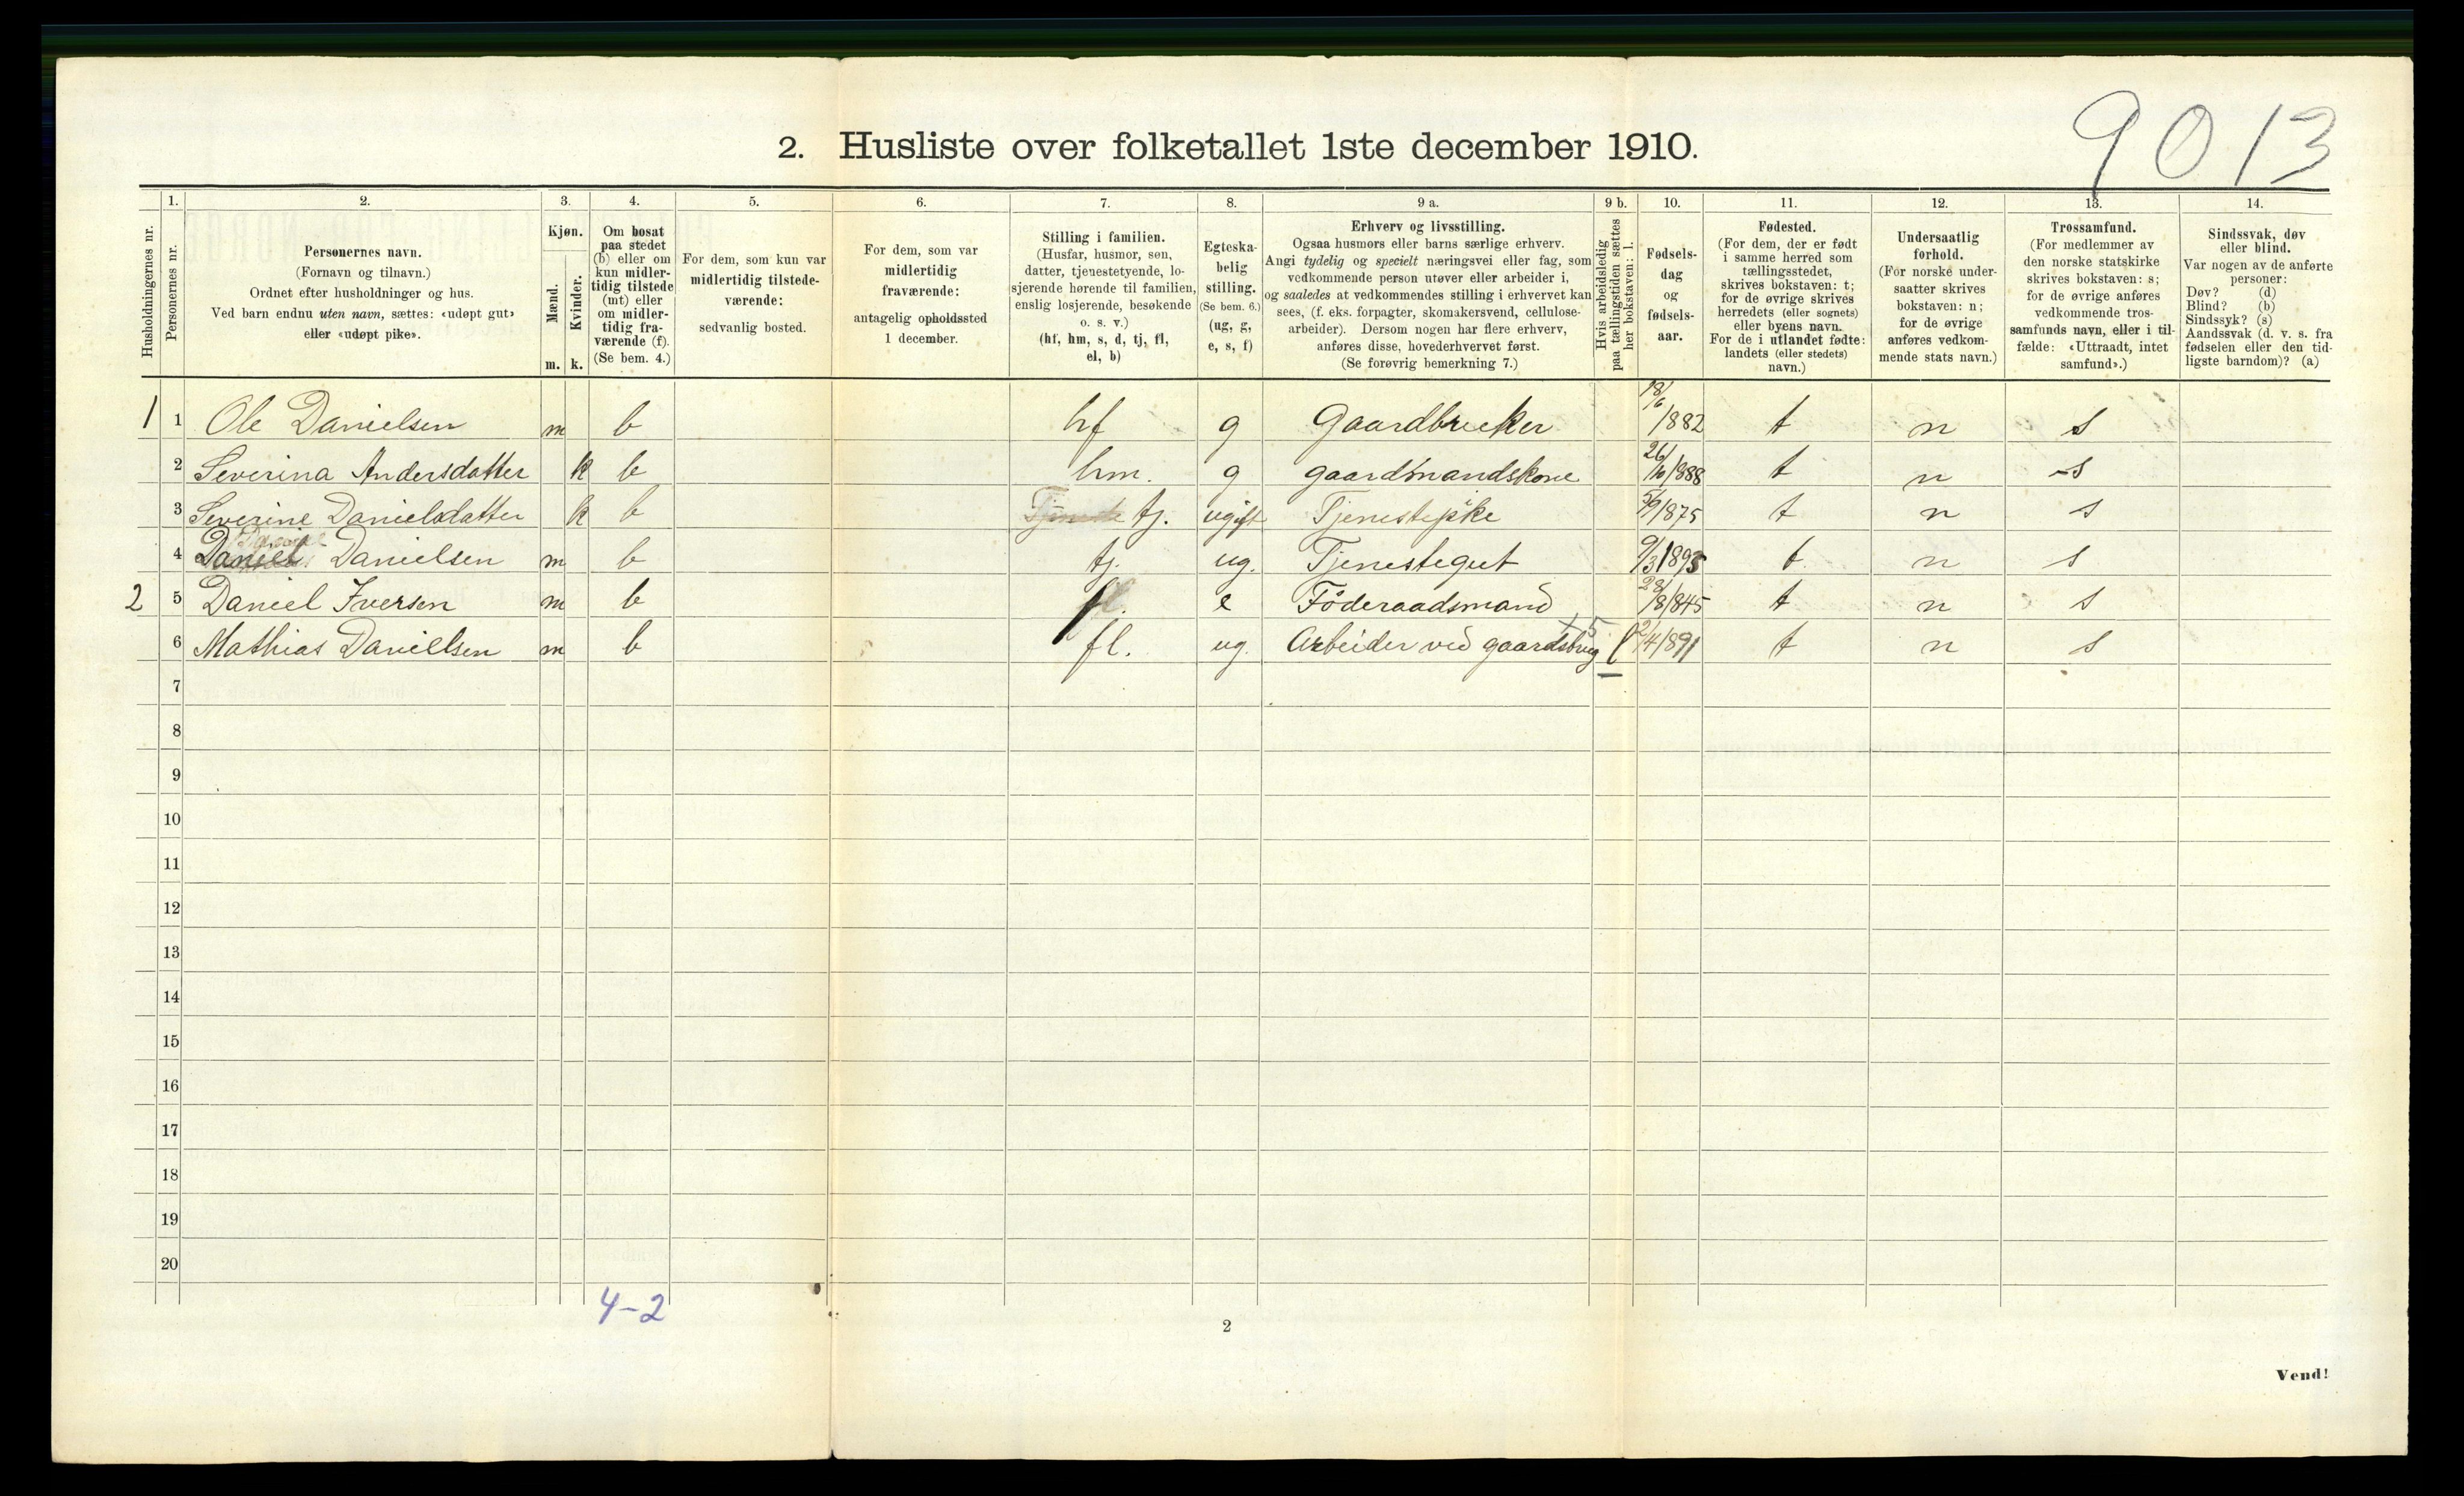 9013
2. Husliste over folketallet 1ste december 1910.
1. 2. 3. 4. 5. 6. 7. 8. 9 a. 9 b. 10. 11. 12. 13. 14.
Husholdningernes nr.
Personernes nr.
Personernes navn.
(Fornavn og tilnavn.)
Ordnet efter husholdninger og hus.
Ved barn endnu uten navn, sættes: «udøpt gut»
eller «udøpt pike».
Kjøn.
Mænd.
Kvinder.
m. k.
Om bosat
paa stedet
(b) eller om
kun midler-
tidig tilstede
(mt) eller
om midler-
tidig fra-
værende (f).
(Se bem. 4.)
For dem, som kun var
midlertidig tilstede-
værende:
sedvanlig bosted.
For dem, som var
midlertidig
fraværende:
antagelig opholdssted
1 december.
Stilling i familien.
(Husfar, husmor, søn,
datter, tjenestetyende, lo-
sjerende hørende til familien,
enslig losjerende, besøkende
o. s. v.)
(hf, hm, s, d, tj, fl,
el, b)
Egteska-
belig
stilling.
(Se bem. 6.)
(ug, g,
e, s, f)
Erhverv og livsstilling.
Ogsaa husmors eller barns særlige erhverv.
Angi tydelig og specielt næringsvei eller fag, som
vedkommende person utøver eller arbeider i,
og saaledes at vedkommendes stilling i erhvervet kan
sees, (f. eks. forpagter, skomakersvend, cellulose-
arbeider). Dersom nogen har flere erhverv,
anføres disse, hovederhvervet først.
(Se forøvrig bemerkning 7.)
Hvis arbeidsledig
paa tællingstiden sættes
her bokstaven: l.
Fødsels-
dag
og
fødsels-
aar.
Fødested.
(For dem, der er født
i samme herred som
tællingsstedet,
skrives bokstaven: t;
for de øvrige skrives
herredets (eller sognets)
eller byens navn.
For de i utlandet fødte:
landets (eller stedets)
navn.)
Undersaatlig
forhold.
(For norske under-
saatter skrives
bokstaven: n;
for de øvrige
anføres vedkom-
mende stats navn.)
Trossamfund.
(For medlemmer av
den norske statskirke
skrives bokstaven: s;
for de øvrige anføres
vedkommende tros-
samfunds navn, eller i til-
fælde: «Uttraadt, intet
samfund».)
Sindssvak, døv
eller blind.
Var nogen av de anførte
personer:
Døv? (d)
Blind? (b)
Sindssyk? (s)
Aandssvak (d. v. s. fra
fødselen eller den tid-
ligste barndom)? (a)
1 1 Ole Danielsen m b hf g Gaardbruker 18/6 1882 t n s
2 Severina Andersdatter k b hm. g gaardmandskone 26/10 1888 t n s
3 Severine Danielsdatter k b tj. ugift Tjenestepike 5/9 1875 t n s
4 Daniel Danielsen m b tj. ug. Tjenestegut 9/3 1895 t n s
2 5 Daniel Iversen m b fl. e Föderaadsmand 28/8 1845 t n s
6 Mathias Daniellsen m b fl. ug. Arbeider ved gaardsbrug l 2/4 1891 t n s
7
8
9
10
11
12
13
14
15
16
17
18
19
20
4-2
2
Vend!